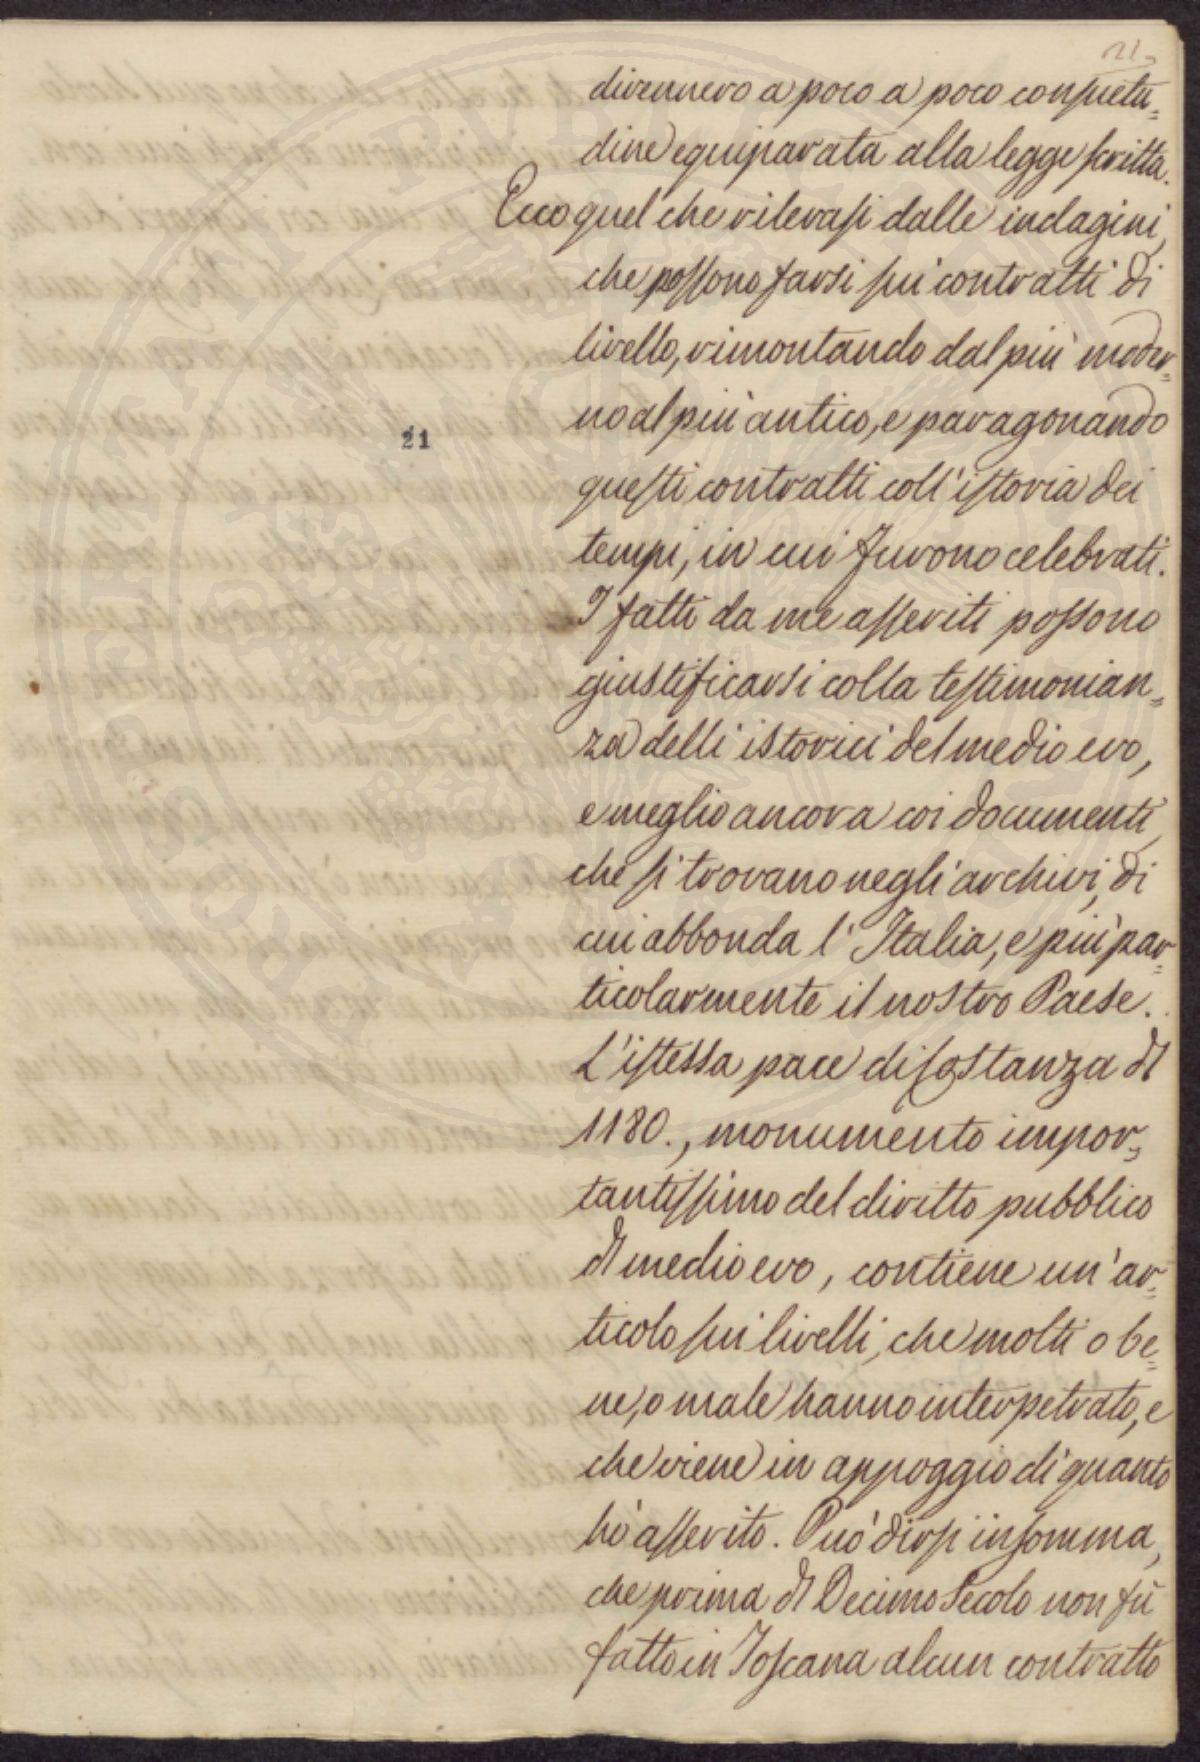 21
divennero a poco a poco consuetu=
dine equiparata alla legge scritta.
Ecco quel che rilevasi dalle indagini,
che possono farsi sui contratti di
livello, rimontando dal più moder=
no al più antico, e paragonando
21
questi contratti coll'istoria dei
tempi, in cui furono celebrati.
I fatti da me asseriti possono
giustificarsi colla testimonian=
za delli istorici del medio evo,
e meglio ancora coi documenti,
che si trovano negli archivi, di
cui abbonda l'Italia, e più par=
ticolarmente il nostro Paese.
L'istessa pace di Costanza dl
1180., monumento impor=
tantissimo del diritto pubblico
dl medio evo, contiene un'ar=
ticolo sui livelli, che molti o be=
ne, o male hanno interpetrato, e
che viene in appoggio di quanto
hò asserito. Può dirsi insomma,
che prima dl Decimo Secolo non fù
fatto in Toscana alcun contratto